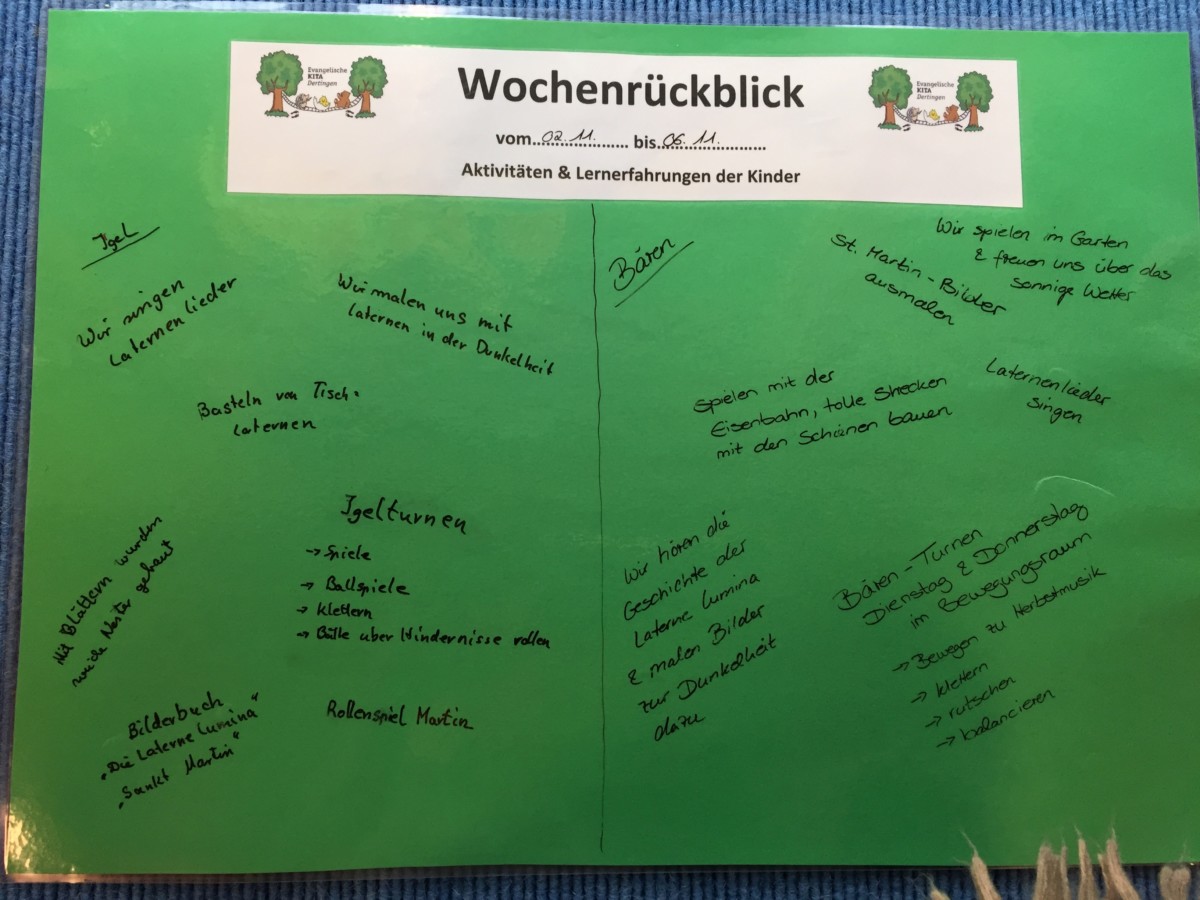 Evangelische
KITA
Dertingen
Wochenrückblick
vom...02.11......... bis...06.11..............
Aktivitäten & Lernerfahrungen der Kinder
Evangelische
KITA
Dertingen
Igel
Wir singen
Laternenlieder
Wir malen uns mit
Laternen in der Dunkelheit
Basteln von Tisch-
laternen
Igelturnen
→ Spiele
→ Ballspiele
→ klettern
→ Bälle über Hindernisse rollen
Mit Blättern wurden
weiche Nester gebaut
Bilderbuch
„Die Laterne Lumina"
„Sankt Martin"
Rollenspiel Martin
Bären
St. Martin-Bilder
ausmalen
Wir spielen im Garten
& freuen uns über das
sonnige Wetter
Spielen mit der
Eisenbahn, tolle Strecken
mit den Schienen bauen
Laternenlieder
singen
Wir hören die
Geschichte der
Laterne Lumina
& malen Bilder
zur Dunkelheit
dazu
Bären-Turnen
Dienstag & Donnerstag
im Bewegungsraum
→ Bewegen zu Herbstmusik
→ klettern
→ rutschen
→ balancieren